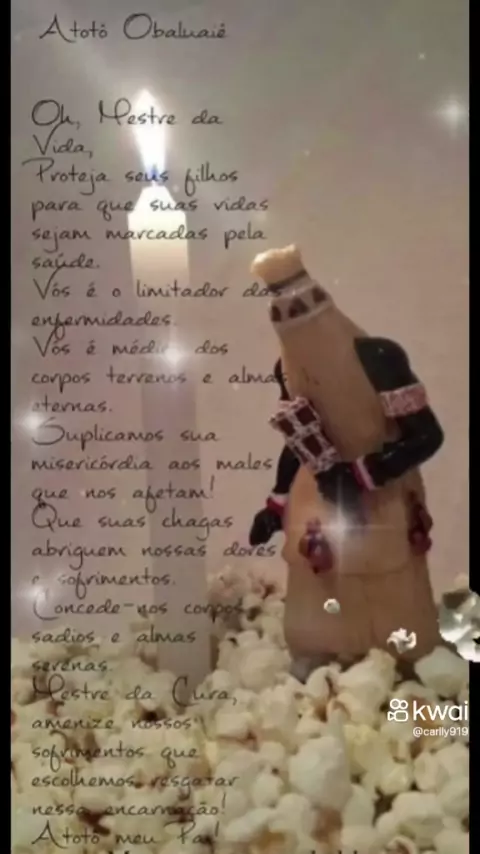 Atotô Obaluaiê
Oh, Mestre da
Vida,
Proteja seus filhos
para que suas vidas
sejam marcadas pela
saúde.
Vós é o limitador das
enfermidades.
Vós é médico dos
corpos terrenos e almas
eternas.
Suplicamos sua
misericórdia aos males
que nos afetam!
Que suas chagas
abriguem nossas dores
e sofrimentos.
Concede-nos corpos
sadios e almas
serenas.
Mestre da Cura,
amenize nossos
sofrimentos que
escolhemos resgatar
nessa encarnação!
Atotô meu Pai!
kwai
@carlly919